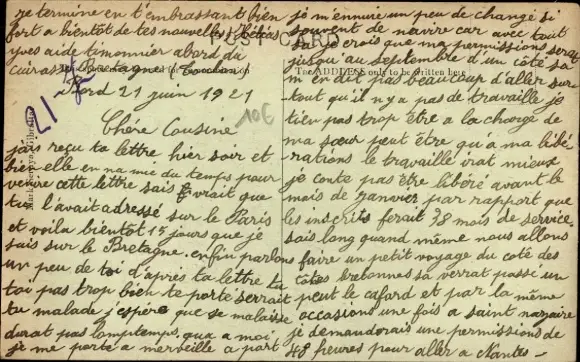 je termine en t'embrassant bien
fort a bientôt de tes nouvelles
yves aide timonnier abord du
cuirassé Bretagne Toulon
POST CARD
The ADDRESS only to be written here
Bord 21 juin 1921
10€
Chère Cousine
jai reçu ta lettre hier soir et
bien elle en na mie du temps pour
venire cette lettre sais vrait que
tu l'avait adressé sur le Paris
et voila bientôt 15 jours que je
suis sur le Bretagne. enfin parlons
un peu de toi d'après ta lettre tu
taï pas trop bien te porte serrait
tu malade j'espère que se malaise
durat pas lomptemps. qua a moi
je me porte a merveille a part
je m'ennuie un peu de changé si
souvent de navire car avec tout
sa je crois que ma permissions serat
jusqu'au septembre d'un côté sa
m'en dit pas beaucoup d'aller sur-
tout qu'il n'y a pas de travaille je
tien pas trop être a la charge de
ma sœur peut être qu'a ma libé-
rations le travaille vrat mieux
je conte pas être libéré avant le
mois de janvier par rapport que
les inscrits ferait 38 mois de service.
sais long quand même nous allons
faire un petit voyage du coté des
côtes bretonnes sa verrat passé un
peut le cafard et par la même
occasions une fois a saint nazaire
je demanderais une permissions de
48 heures pour aller a Nantes.